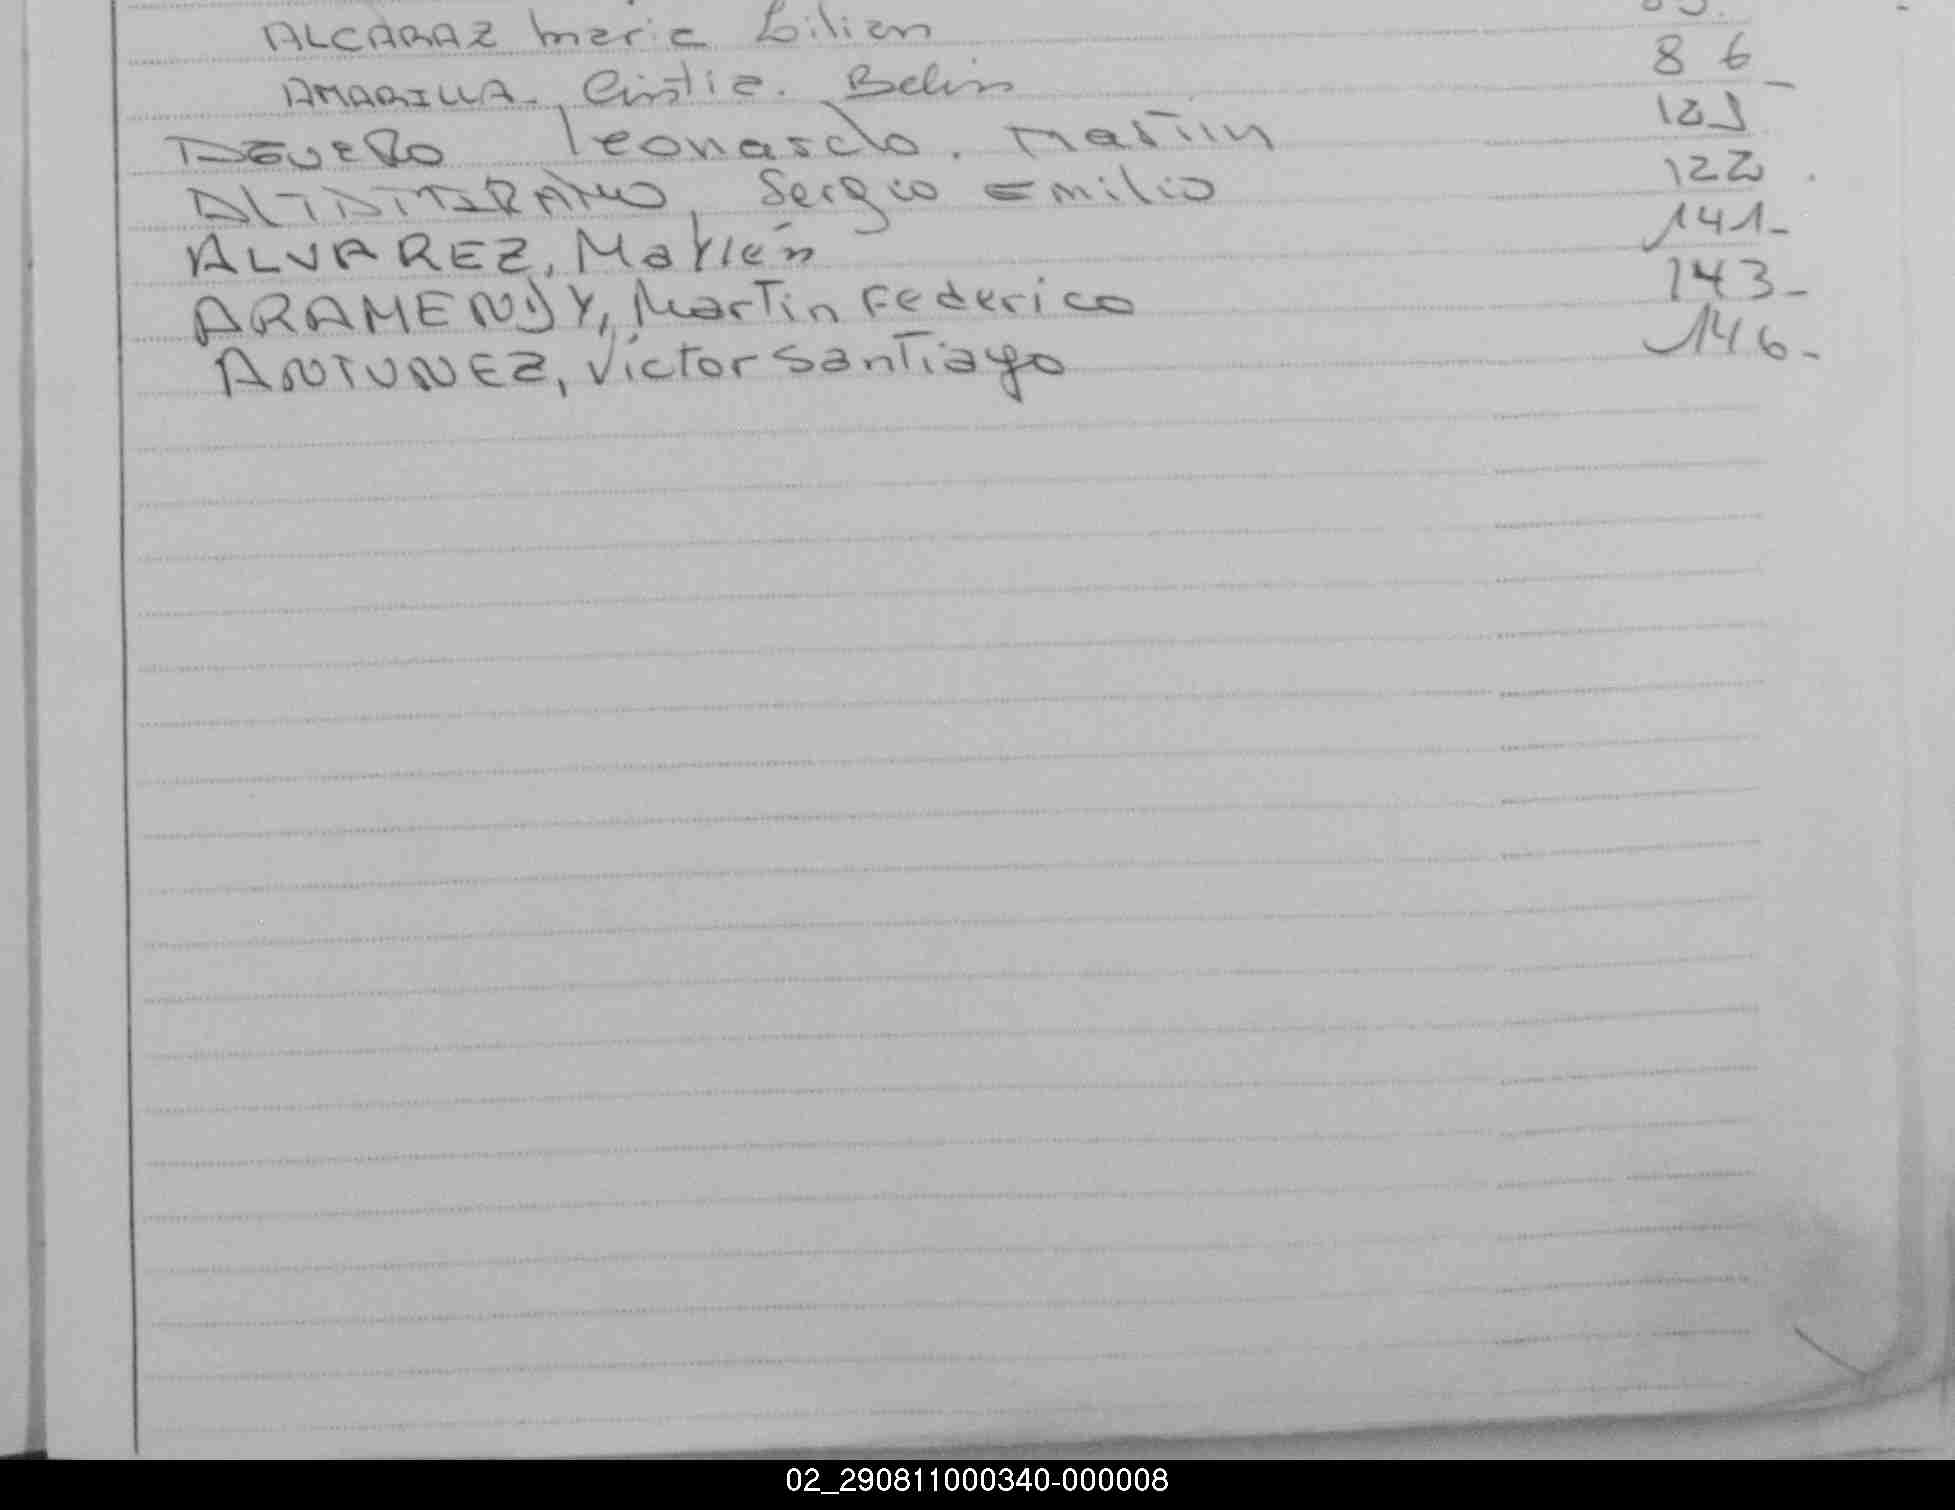 ALCARAZ Maria Lilian
AMARILLA. Cintia. Belén 86_
AGUERO Leonardo. Martin
ALTAMIRANO, Sergio Emilio 122.
ALVAREZ, Marlén 141-
ARAMENDY, Martin Federico 143-
ANTUNEZ, Victor Santiago 146-
02_290811000340-000008